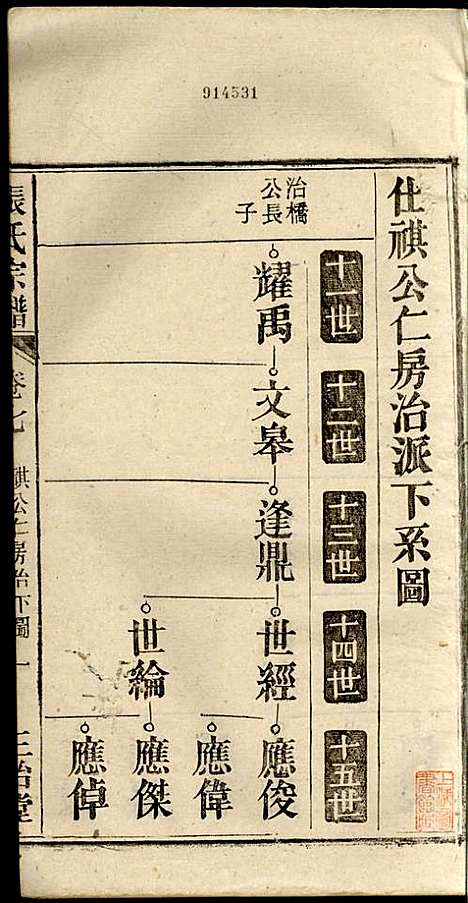 914531
仕祺公仁房治派下系圖
十一世
十二世
十三世
十四世
十五世
治橋
公長
子
耀禹
文皋
逢鼎
世經
世綸
應俊
應偉
應傑
應倬
張氏宗譜
卷七
祺公仁房治下圖
一